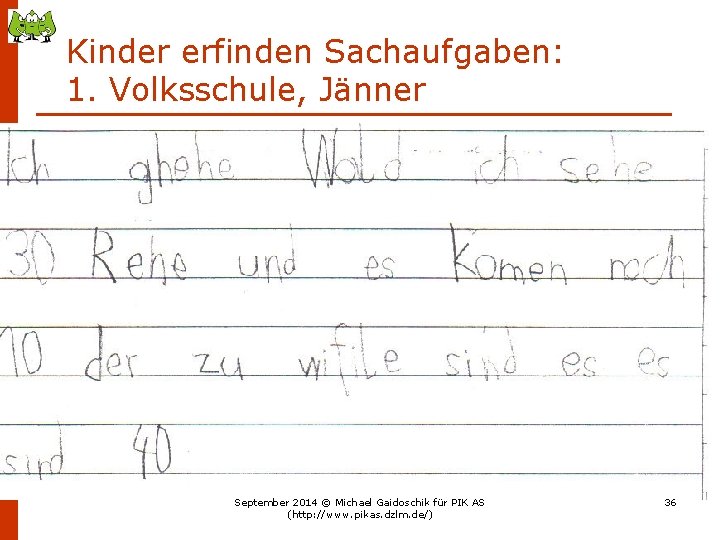 Kinder erfinden Sachaufgaben:
1. Volksschule, Jänner
Ich ghehe Wald ich sehe
30 Rehe und es Komen noch
10 der zu wifile sind es es
sind 40
September 2014 © Michael Gaidoschik für PIK AS
(http://www.pikas.dzlm.de/)
36